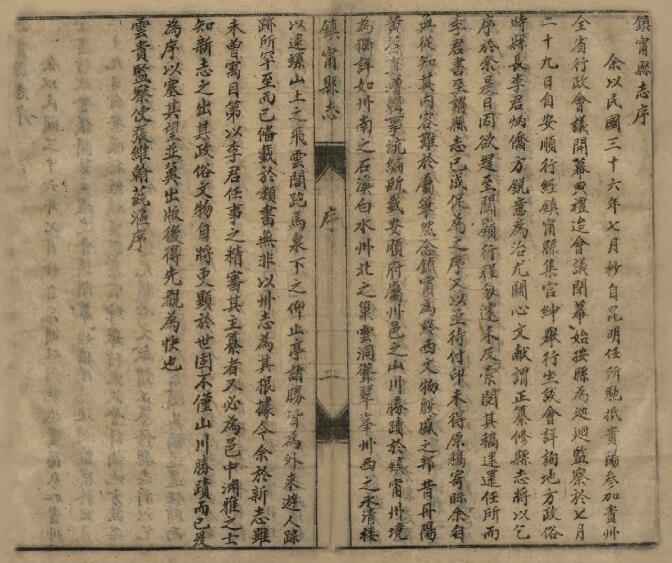 鎮甯縣志序
余以民國三十六年七月杪自昆明任所馳抵貴陽參加貴州
全省行政會議開幕典禮迨會議閉幕始按縣為巡迴監察於七月
二十九日自安順行經鎮甯縣集官紳舉行坐談會詳詢地方政俗
時縣長李君炳儕方銳意為治尤關心文獻謂正纂修縣志將以乞
序於余是日因欲趕至關嶺行程匆遽未及索閱其稿遽還任所而
李君書至謂縣志已成促為之序又以亟待付印未得原稿寄眎余自
無從知其內容難於屬筆然念鎮甯為黔西文物殷盛之邦昔丹陽
黃
為獨詳如州南之石溪白水州北之巢雲洞聳翠峯州西之水清樓
鎮甯縣志
序
二
以逮螺山上之飛雲閣跑馬泉下之仰止亭諸勝皆為外來遊人踪
跡所罕至而已備載於類書無非以州志為其根據今余於新志雖
未曾寓目第以李君任事之精審其主纂者又必為邑中淵雅之士
知新志之出其政俗文物自將更顯於世固不僅山川勝蹟而已爰
為序以塞其望並冀出版後得先覩為快也
雲貴監察使張維翰蒓漚序